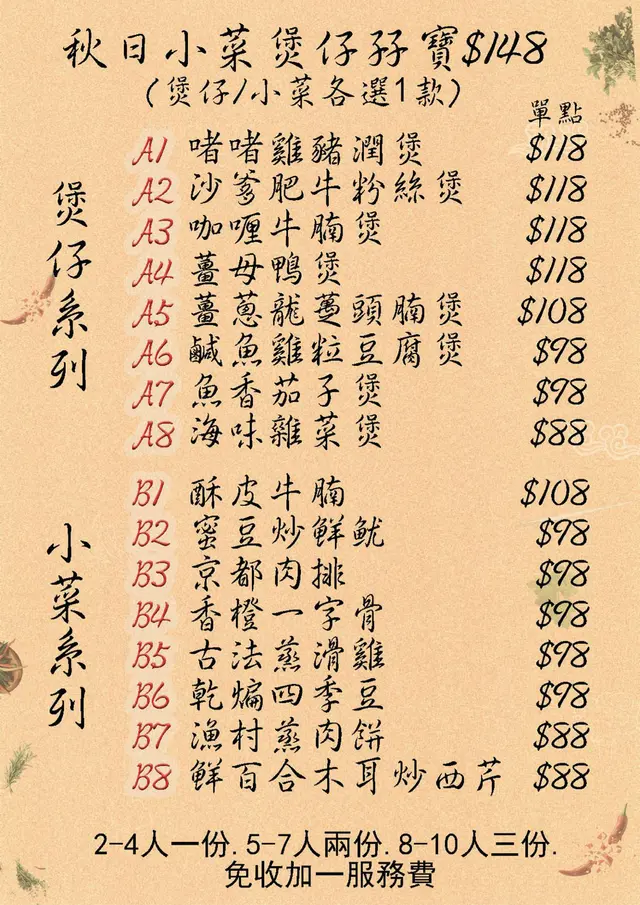 秋日小菜煲仔孖寶$148
(煲仔/小菜各選1款)
單點
煲仔系列
A1 啫啫雞豬潤煲 $118
A2 沙爹肥牛粉絲煲 $118
A3 咖喱牛腩煲 $118
A4 薑母鴨煲 $118
A5 薑蔥龍躉頭腩煲 $108
A6 鹹魚雞粒豆腐煲 $98
A7 魚香茄子煲 $98
A8 海味雜菜煲 $88
小菜系列
B1 酥皮牛腩 $108
B2 蜜豆炒鮮魷 $98
B3 京都肉排 $98
B4 香橙一字骨 $98
B5 古法蒸滑雞 $98
B6 乾煸四季豆 $98
B7 漁村蒸肉餅 $88
B8 鮮百合木耳炒西芹 $88
2-4人一份. 5-7人兩份. 8-10人三份.
免收加一服務費